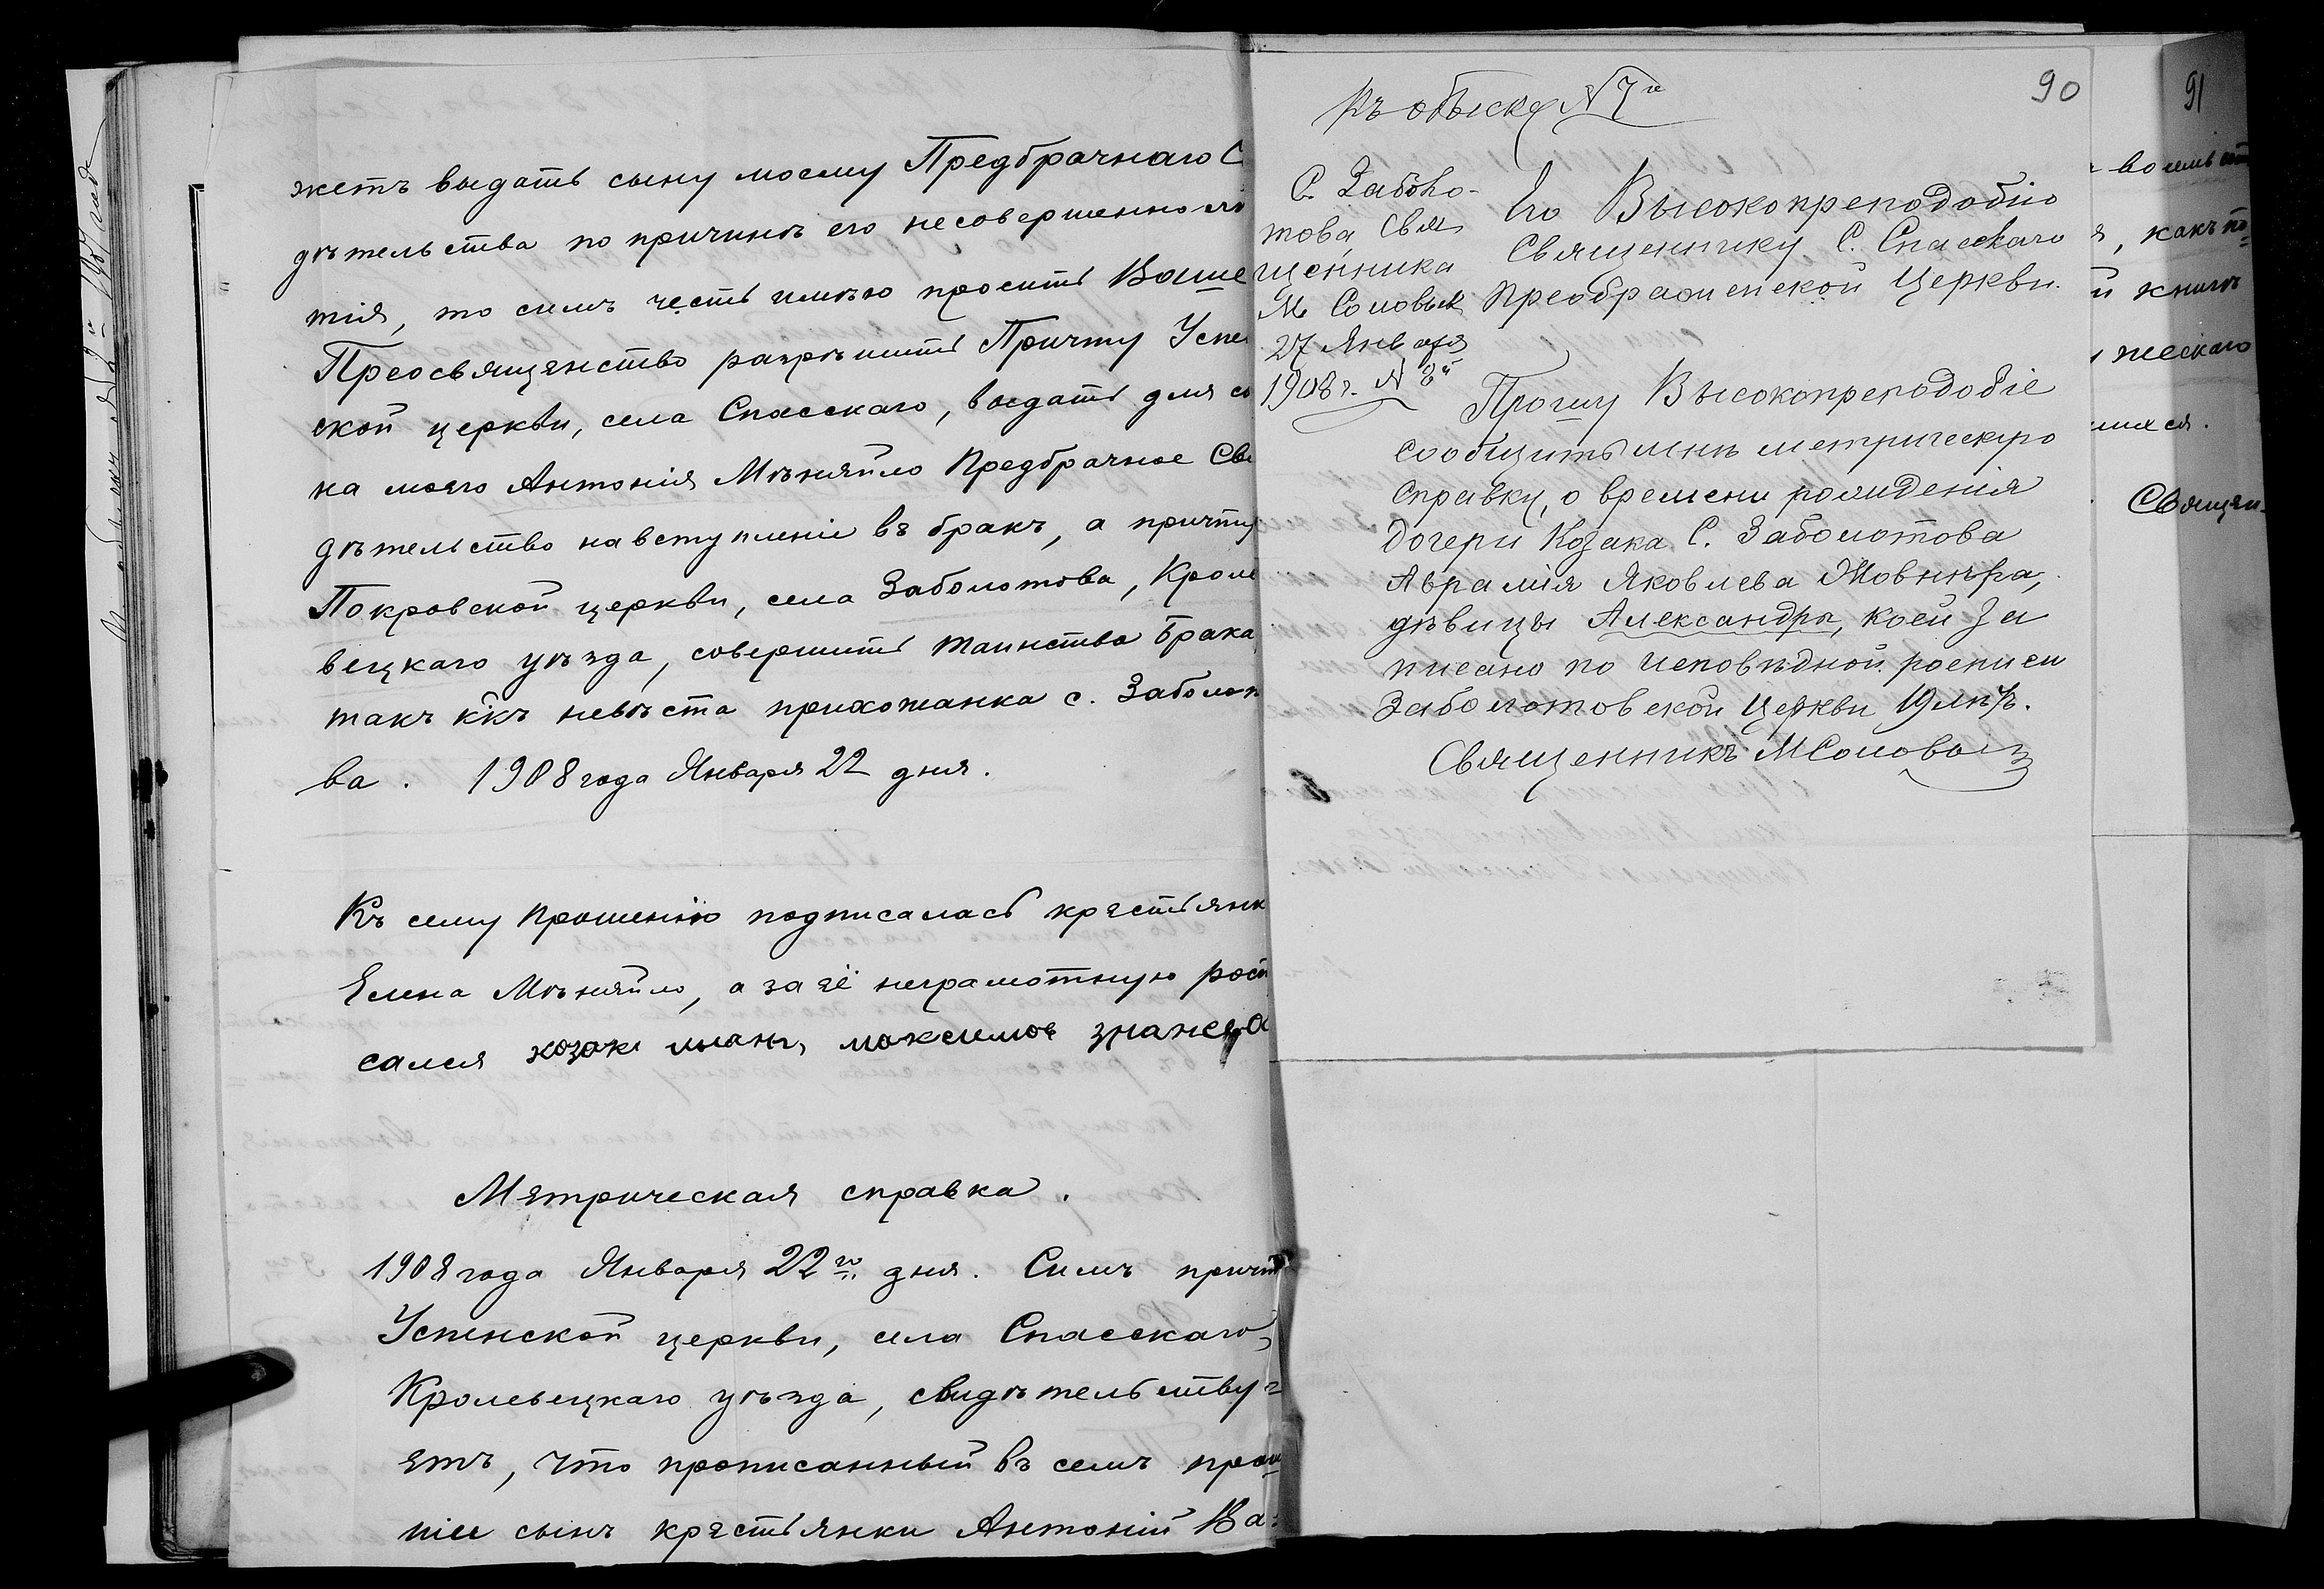 жетъ выдать сыну моему Предбрачнаго С
дѣтельства по причинѣ его несовершенноле
тія, то симъ честь имѣю просить Ваше
Преосвященство разрѣшить Причту Успе
ской церкви, села Спасскаго, выдать для сы
на моего Антонія Мѣняйло Предбрачное Сви
дѣтельство на вступленіе въ бракъ, а причту
Покровской церкви, села Заболотова, Кроле
вецкаго уѣзда, совершить таинство брака,
такъ какъ невѣста прихожанка с. Заболот
ва. 1908 года Января 22 дня.
Къ сему прошенію подписалась крестьянк
Елена Мѣняйло, а за её неграмотную росп
сался козакъ иванъ максимов
Метрическая справка.
1908 года Января 22го дня. Симъ причт
Успенской церкви, села Спасскаго,
Кролевецкаго уѣзда, свидѣтельству=
етъ, что прописанный въ семъ прош
ніи сынъ крестьянки Антоній Ва=
Къ обыску № 7й
90
С. Заболо-
това, Свя
щенника
М. Соловья
27 Января
1908 г. № 8й
Его Высокопреподобію
Священнику С. Спасскаго
Преображенской Церкви.
Прошу Высокопреподобіе
сообщить мнѣ метрическую
справку, о времени рожденія
дочери Козака С. Заболотова
Аврамія Яковлева Жовнѣра,
дѣвицы Александры, коей за
писано по исповѣдной росписи
Заболотовской Церкви 19 лѣтъ.
Священникъ М Соловьевъ
91
, какъ по
и книгѣ
ческаго
шихся.
Священ-